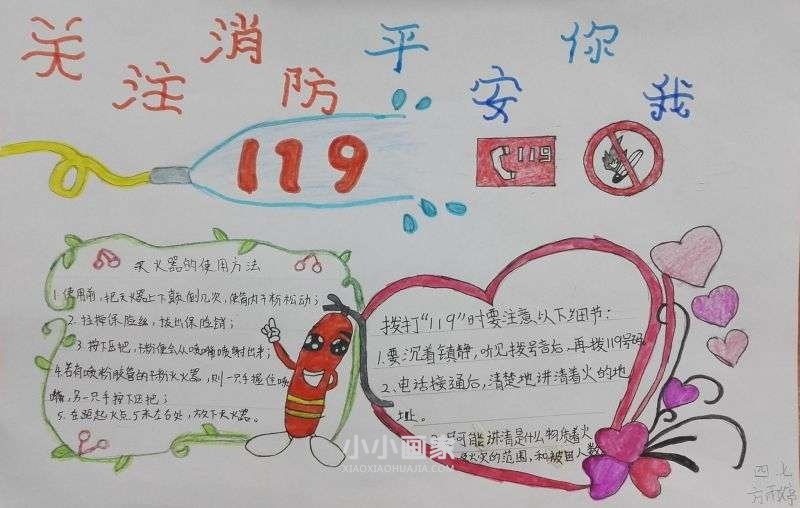 关注消防平安你我
119
119
灭火器的使用方法
1.使用前,把灭火器上下颠倒几次,使筒内干粉松动;
2.拉掉保险丝,拔出保险销;
3.按下压把,干粉便会从喷嘴喷射出来;
4.若有喷粉胶管的干粉灭火器,则一只手握住喷
嘴,另一只手按下压把;
5.在距起火点5米左右处,放下灭火器。
拨打“119”时要注意以下细节:
1.要沉着镇静,听见拨号音后,再拨119号码
2.电话接通后,清楚地讲清着火的地
址。
可能讲清是什么物质着火
火灾的范围,和被困人数
小小画家
XIAOXIAOHUAJIA.COM
四七